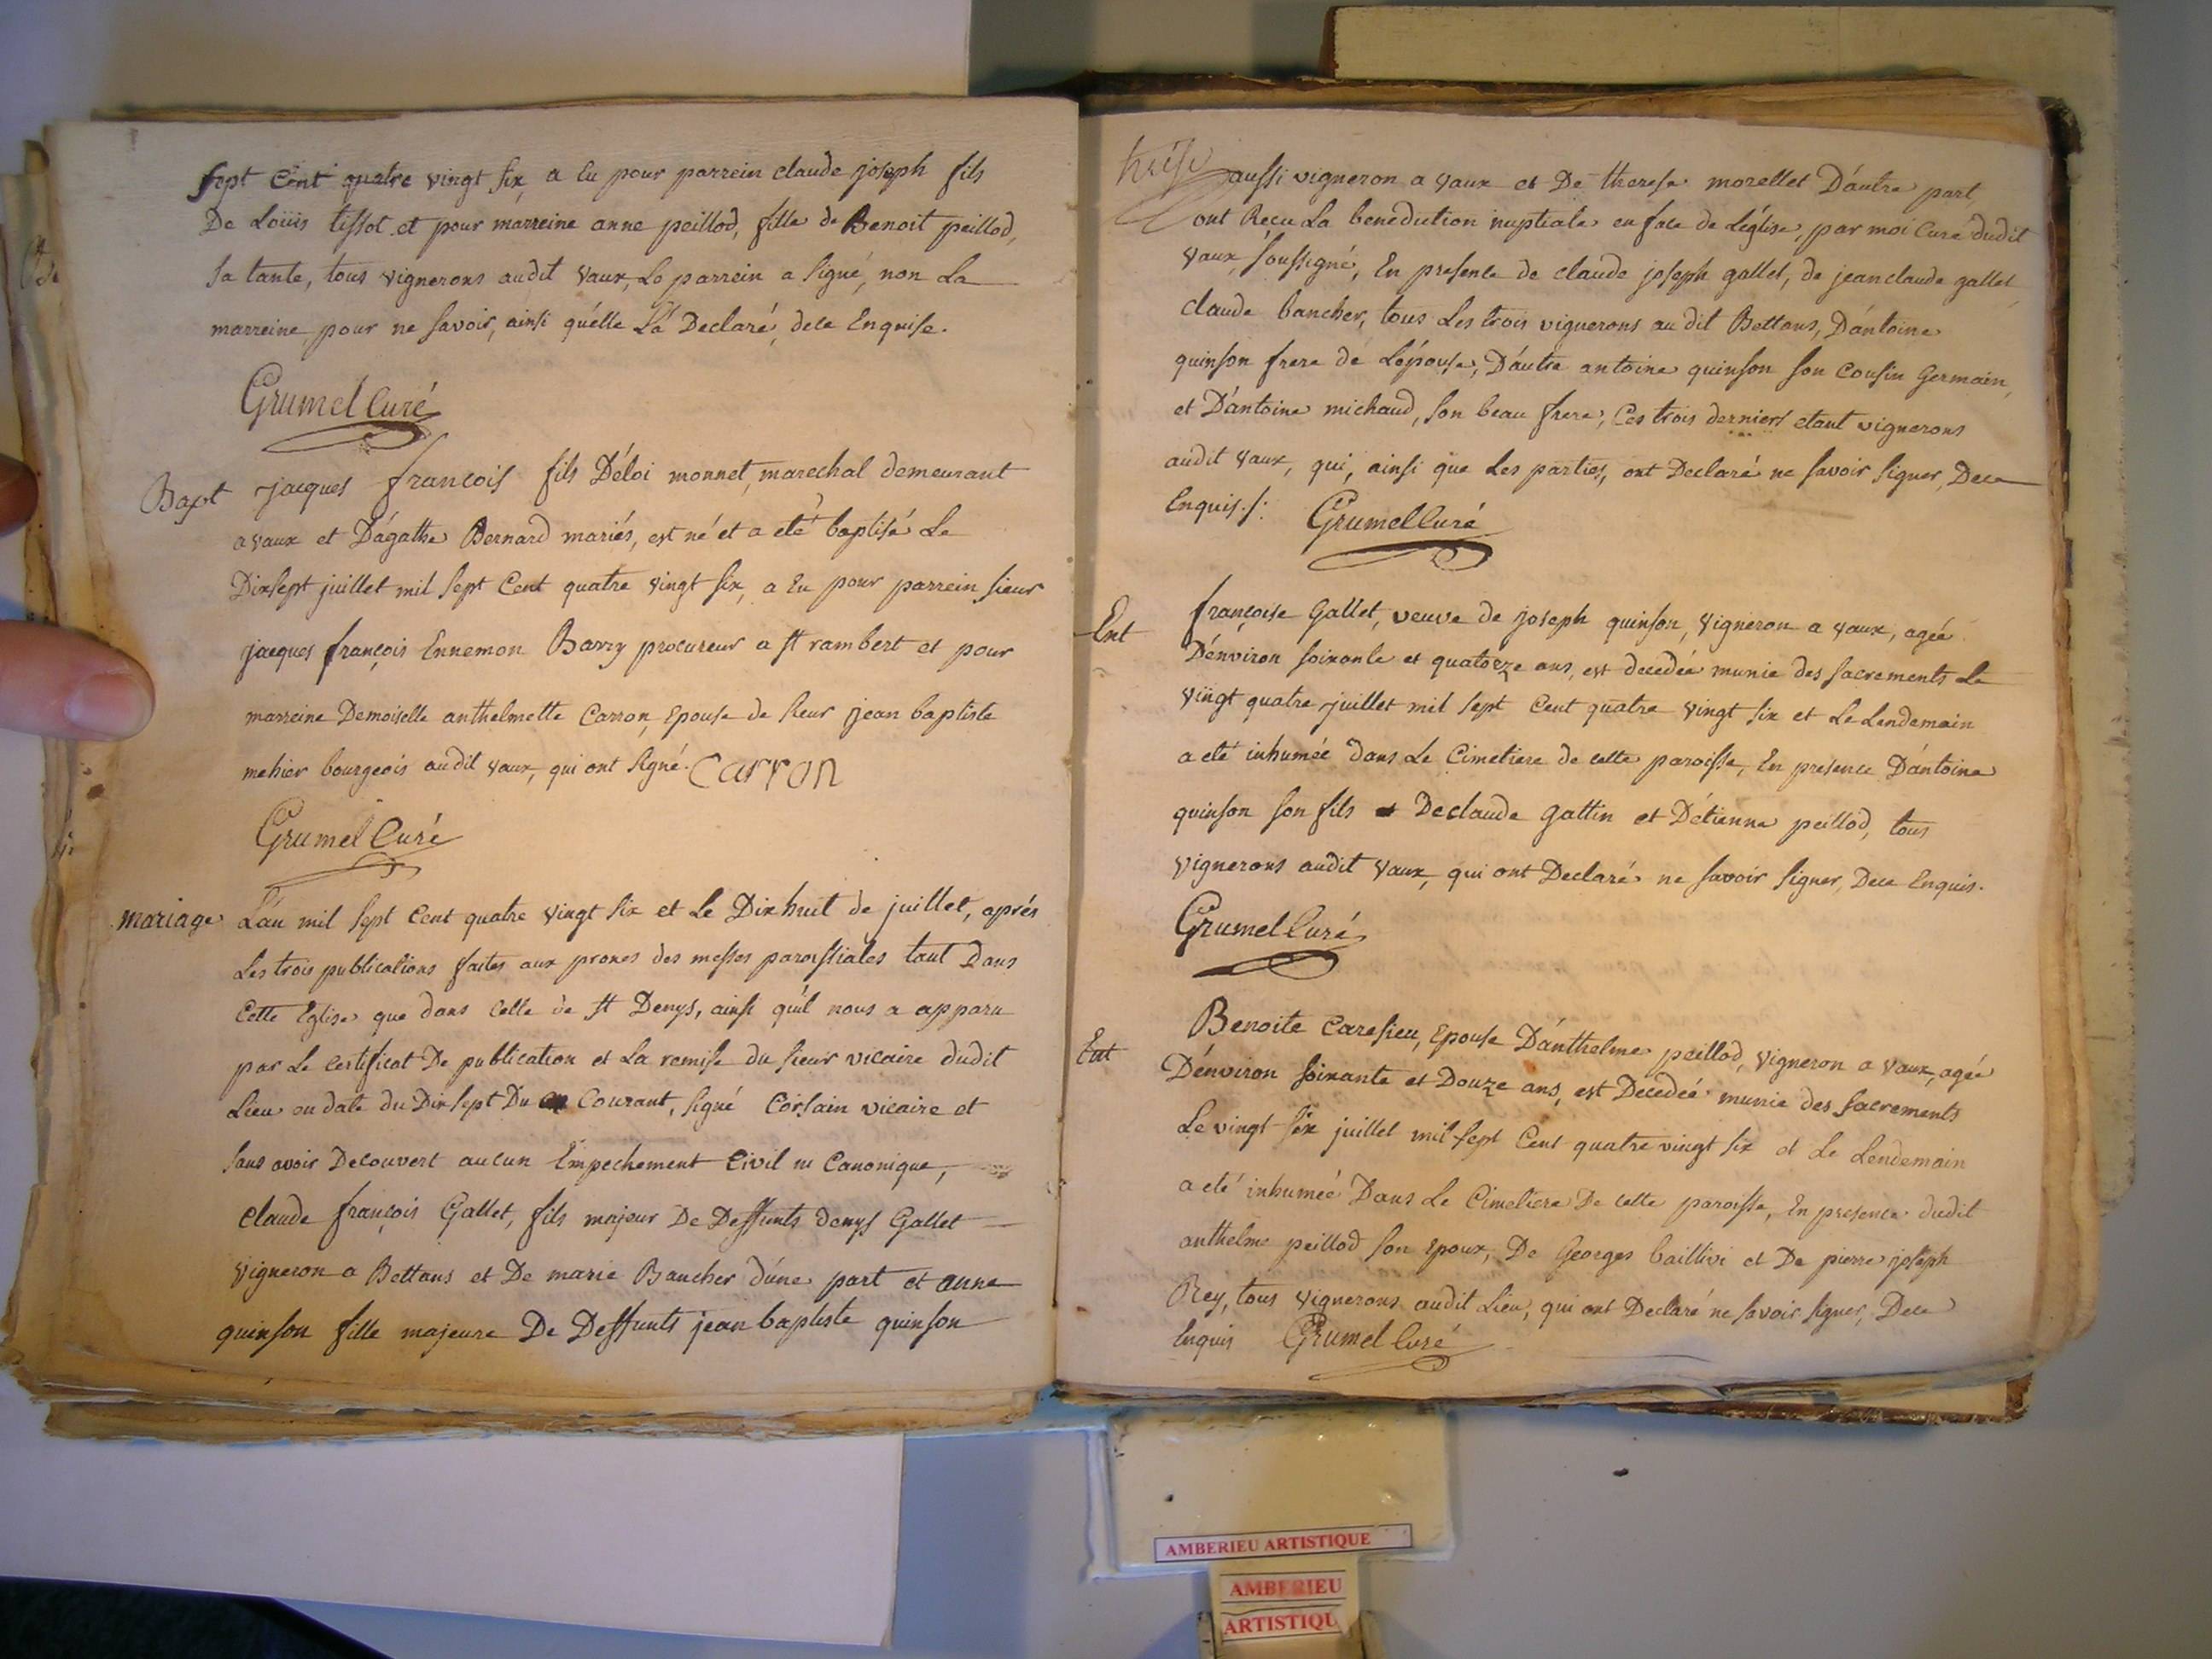 sept Cent quatre vingt six a Eu pour parrein claude joseph fils
De Loüis tissot et pour marreine anne peillod, fille de Benoit peillod,
sa tante, tous vignerons audit vaux, Le parrein a signé, non La
marreine, pour ne savoir, ainsi qu'elle L'a Declaré, dece Enquise.
Grumel Curé
Bapt
jacques francois fils D'éloi monnet, marechal demeurant
a vaux et D'agathe Bernard mariés, est né et a eté baptisé Le
Dixsept juillet mil sept Cent quatre vingt six, a Eu pour parrein sieur
jacques françois Ennemon Barry procureur a st rambert et pour
marreine Demoiselle anthelmette Carron, Epouse de sieur jean baptiste
mehier bourgeois audit vaux, qui ont signé. Carron
Grumel Curé
mariage
L'an mil sept Cent quatre vingt six et Le Dixhuit de juillet, aprés
Les trois publications faites aux prones des messes paroissiales tant Dans
Cette Eglise que dans Celle de st Denys, ainsi qu'il nous a apparu
par Le Certificat De publication et La remise du sieur vicaire dudit
Lieu en date du Dixsept Du Courant, signé Corsain vicaire et
sans avoir Decouvert aucun Empechement Civil ni Canonique,
Claude françois Gallet, fils majeur De Deffunts denys Gallet
vigneron a Bettans et De marie Baucher d'une part et anne
quinson fille majeure De Deffunts jean baptiste quinson
treise
aussi vigneron a vaux et De therese morellet D'autre part,
ont Recu La benediction nuptiale en face de L'église, par moi Curé dudit
vaux, soussigné, En presence de claude joseph gallet, de jean claude gallet
claude baucher, tous Les trois vignerons au dit Bettans, D'antoine
quinson frere de L'épouse, D'autre antoine quinson son Cousin Germain,
et D'antoine michaud, son beau frere, Ces trois derniers etant vignerons
audit vaux, qui, ainsi que Les parties, ont Declaré ne savoir signer, Dece
Enquis./:
Grumel Curé
Ent
françoise Gallet, veuve de joseph quinson, vigneron a vaux, ageé
D'environ soixante et quatorze ans, est decedeé munie des sacrements Le
vingt quatre juillet mil sept Cent quatre vingt six et Le Lendemain
a eté inhumée Dans Le Cimetiere de cette paroisse, En presence D'antoine
quinson son fils De claude gattin et D'etienne peillod, tous
vignerons audit vaux, qui ont Declaré ne savoir signer, Dece Enquis.
Grumel Curé
Ent
Benoite Caresieu, Epouse D'anthelme peillod, vigneron a vaux, ageé
D'environ soixante et Douze ans, est Decedeé munie des sacrements
Le vingt six juillet mil sept Cent quatre vingt six et Le Lendemain
a eté inhumeé Dans Le Cimetiere De cette paroisse, En presence dudit
anthelme peillod son Epoux, De Georges baillivi et De pierre joseph
Rey, tous vignerons audit Lieu, qui ont Declaré ne savoir signer, Dece
Enquis Grumel Curé
AMBERIEU ARTISTIQUE
AMBERIEU
ARTISTIQU